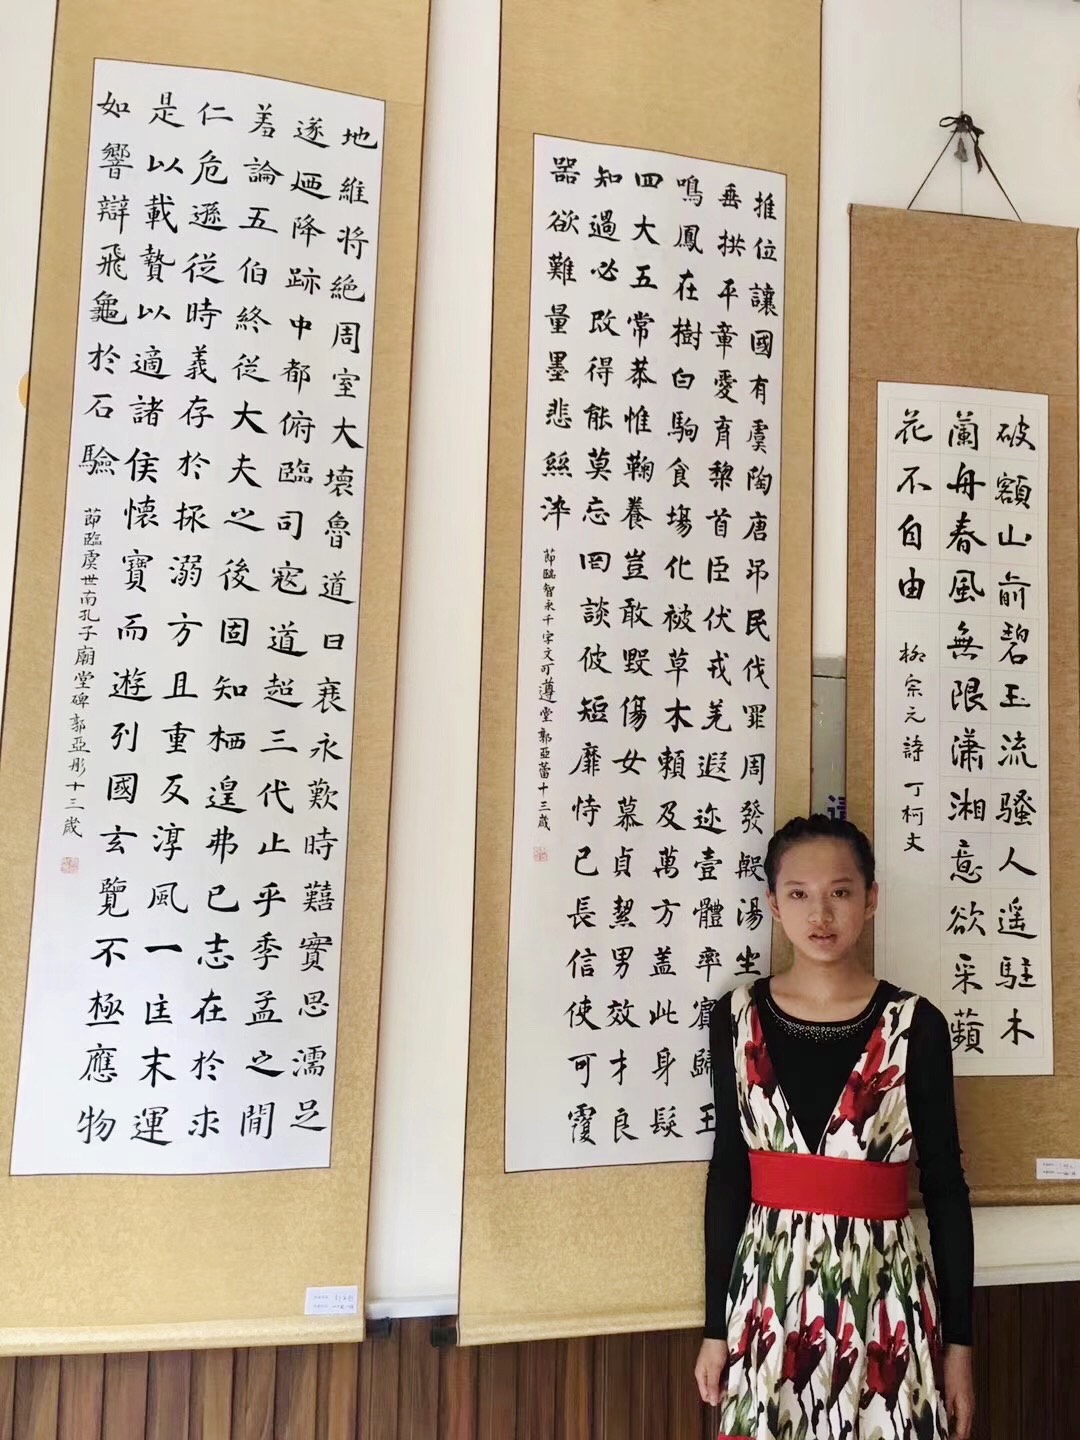 破額山前碧玉流騷人遥駐木
蘭舟春風無限瀟湘意欲采蘋
花不自由 柳宗元詩 丁柯文
推位讓國有虞陶唐吊民伐罪周發殷湯坐
垂拱平章愛育黎首臣伏戎羌遐迩壹體率賓歸王
鳴鳳在樹白駒食場化被草木賴及萬方盖此身髮
四大五常恭惟鞠養豈敢毀傷女慕貞絜男效才良
知過必改得能莫忘罔談彼短靡恃己長信使可覆
器欲難量墨悲絲染 節臨智永千字文可遵堂郭亞蕾十三歲
地維將絕周室大壞魯道日衰永歎時囏實思濡足
遂迺降跡中都俯臨司寇道超三代止乎季孟之閒
羞論五伯終從大夫之後固知栖遑弗已志在於求
仁危遜從時義存於拯溺方且重反淳風一匡末運
是以載贄以適諸侯懷寶而遊列國玄覽不極應物
如響辯飛龜於石驗 節臨虞世南孔子廟堂碑郭亞彤十三歲